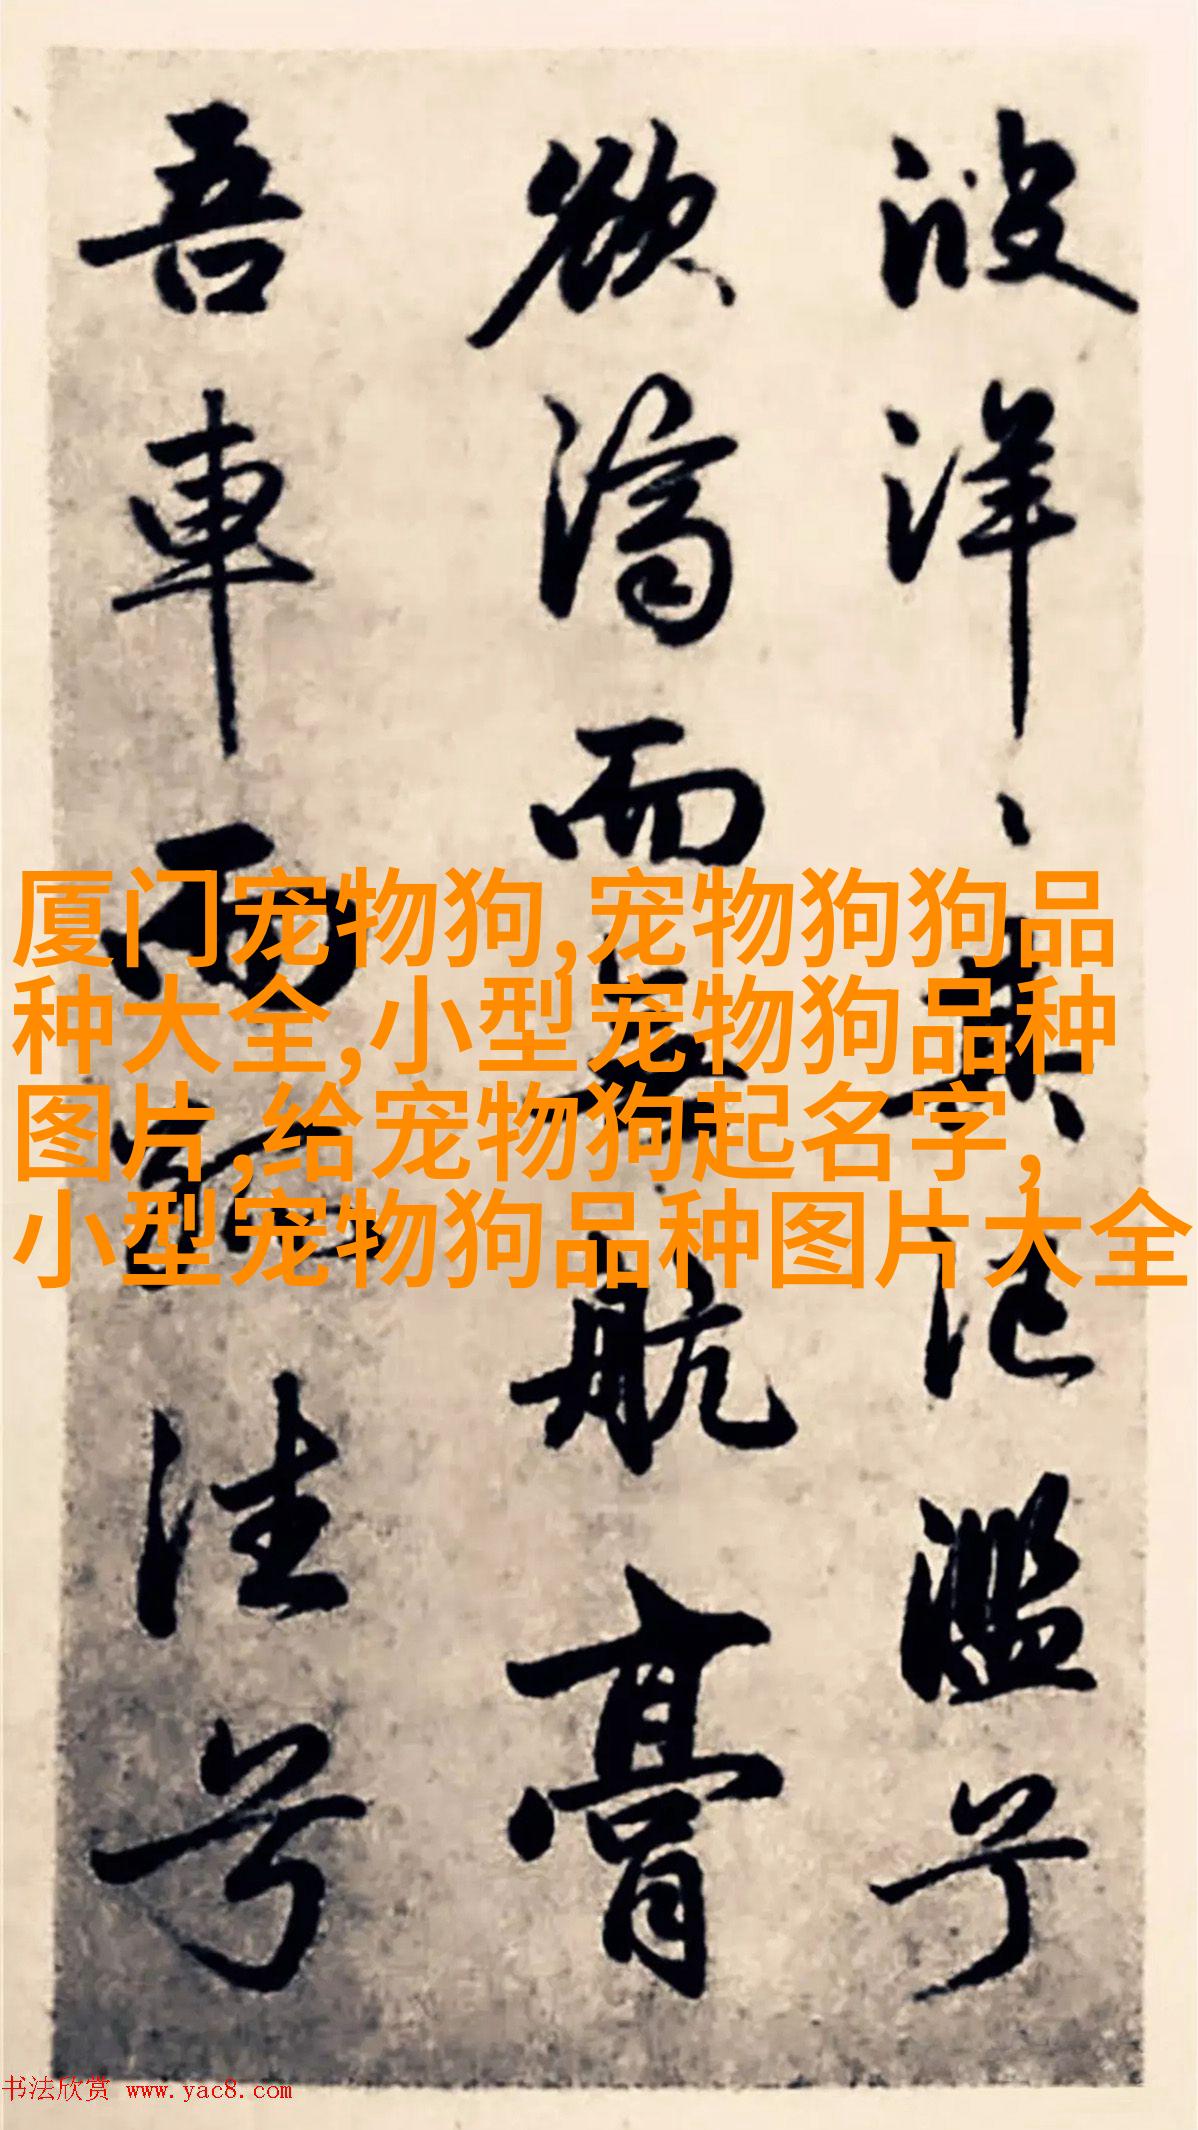 波洋〻其氾濫兮
欲濟而無航膏
吾車而往兮
厦门宠物狗,宠物狗狗品
种大全,小型宠物狗品种
图片,给宠物狗起名字,
小型宠物狗品种图片大全
书法欣赏 www.yac8.com